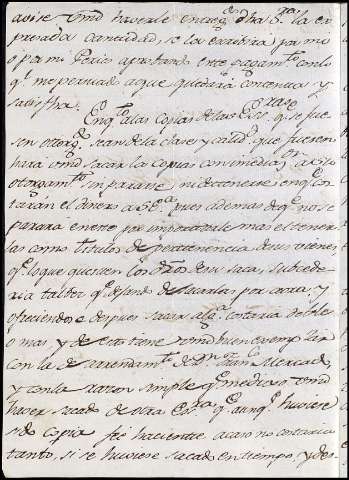 avise Vmd haverle entreg.do dha S.ra la ex
presada cantidad, se la escribira por mi
o p.r mi Genio aprobando este pagam.to con lo
q.e me persuado a que quedara contenta y
satisfha.
En q.to a las copias de las Escras q.e se fue
sen otorg.do sean de la clase y calid.d que fuesen
hara Vmd sacar la copias con inmediaz.on a su
otorgam.to sin pararse ni detenerse en q.e cos
taràn el dinero a S E.a pues ademas de q.e no se
parara en este por importarle mas el tener
las como titulos de pertenencia de sus vienes,
q.e lo que questen los dros de su saca, subcede
ria tal vez q.e dejando de sacarlas por ahora, y
ofreciendose despues sacar alg.a costaria doble
o mas, y de esto tiene Vmd buen exemplar
con la de arrendam.to de D.n Fran.co Mercad
y con la razon simple q.e me dice Vmd
haver sacado de otra Esra q.e aunq.e huviese
sido copia feè haciente, acaso no costaria
tanto, si se huviese sacado en tiempo, y des-